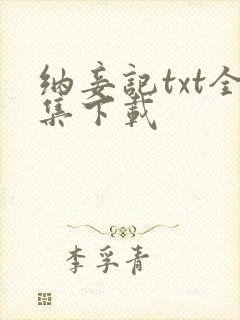 纳妾記txt全
集下載
李孚青